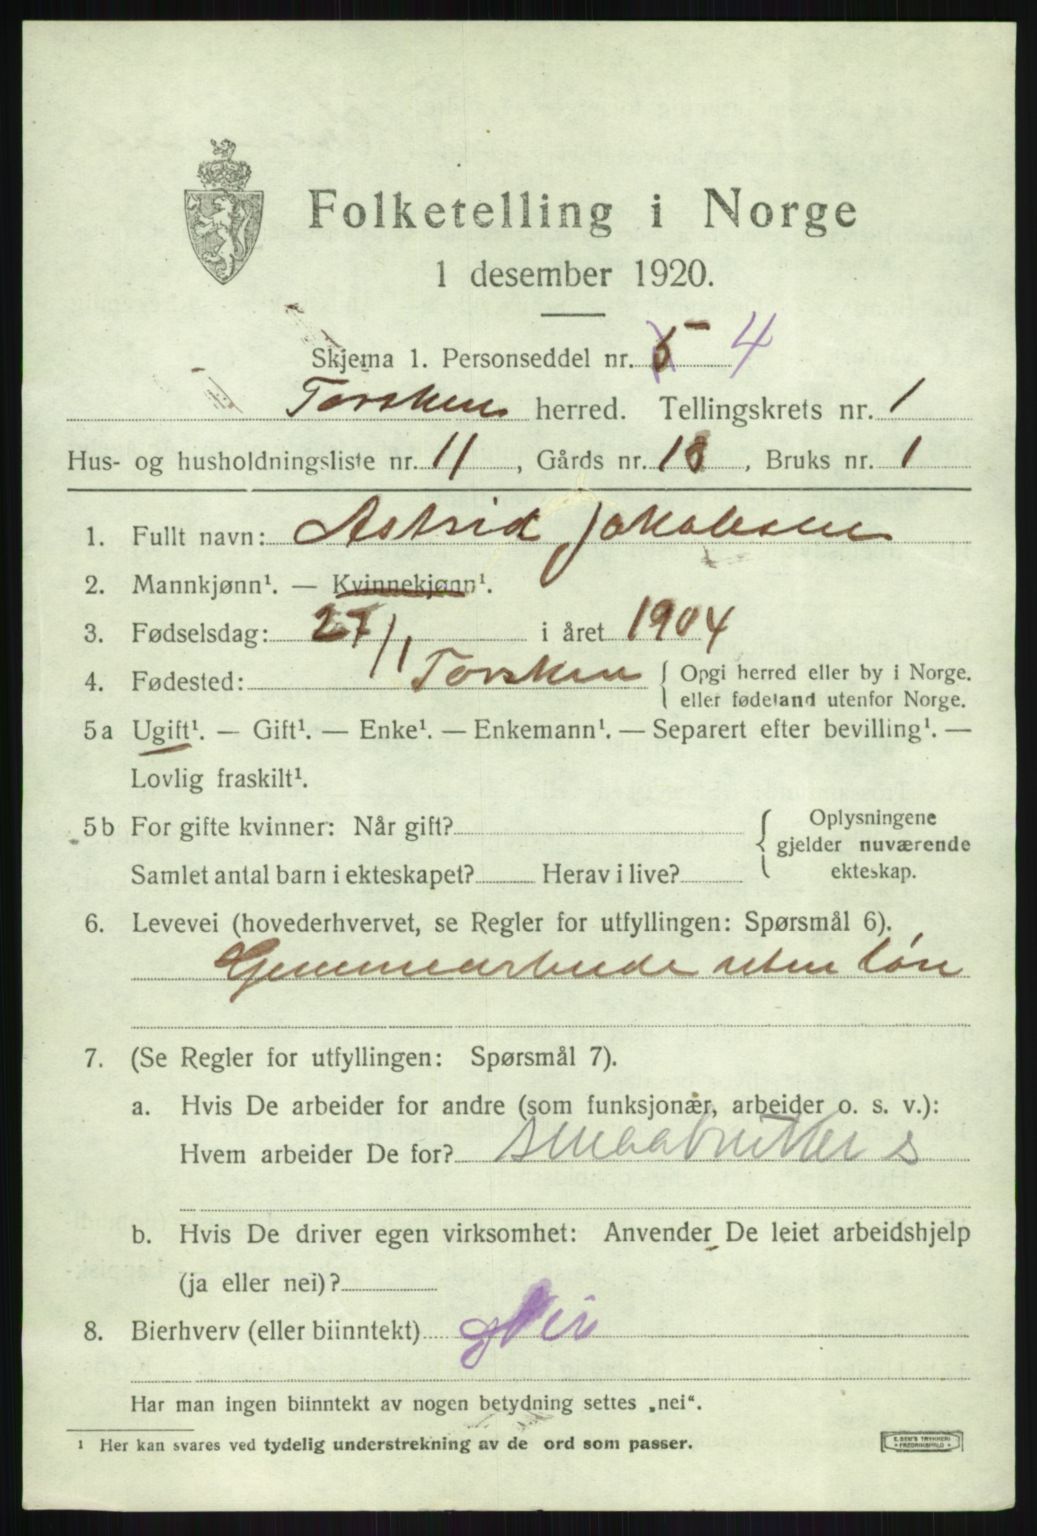 Folketelling i Norge
1 desember 1920.
Skjema 1. Personseddel nr. 5 4
Torsken herred. Tellingskrets nr. 1
Hus- og husholdningsliste nr. 11, Gårds nr. 18, Bruks nr. 1
1. Fullt navn: Astrid Jakobsen
2. Mannkjønn¹. — Kvinnekjønn¹.
3. Fødselsdag: 27/1 i året 1904
4. Fødested: Torsken { Opgi herred eller by i Norge.
eller fødeland utenfor Norge.
5a Ugift¹. — Gift¹. — Enke¹. — Enkemann¹. — Separert efter bevilling¹. —
Lovlig fraskilt¹.
5b For gifte kvinner: Når gift? { Oplysningene
gjelder nuværende
Samlet antal barn i ekteskapet? Herav i live? ekteskap.
6. Levevei (hovederhvervet, se Regler for utfyllingen: Spørsmål 6).
uten løn
7. (Se Regler for utfyllingen: Spørsmål 7).
a. Hvis De arbeider for andre (som funksjonær, arbeider o. s. v.):
Hvem arbeider De for? smaabruker s
b. Hvis De driver egen virksomhet: Anvender De leiet arbeidshjelp
(ja eller nei)?
8. Bierhverv (eller biinntekt) Nei
Har man ingen biinntekt av nogen betydning settes „nei“.
¹ Her kan svares ved tydelig understrekning av de ord som passer.